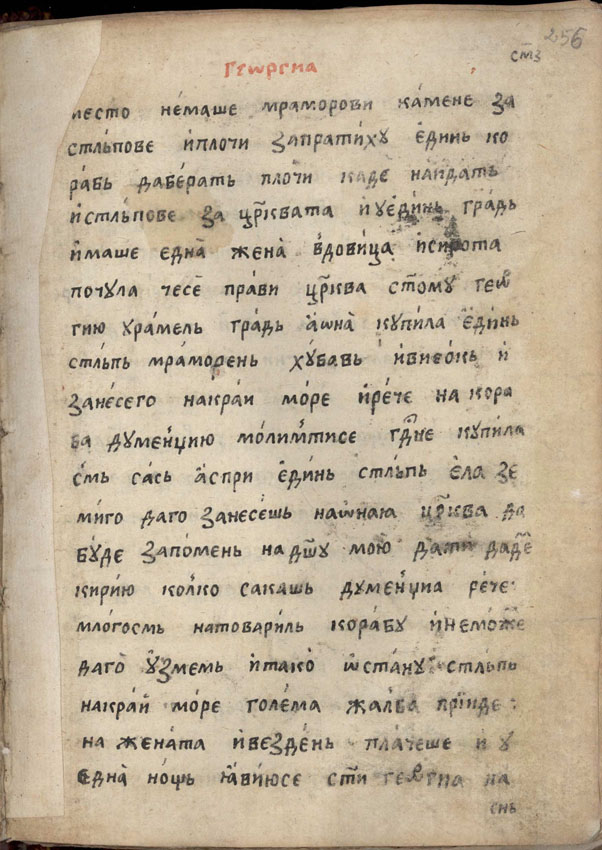 256
стⷨз
Геѡргиа
место не́маше мраморови ка́мене за
стлъпове и҆плочи запрати́ху е҆динь ко
ра́бь дабе́рать плочи каде наи́дать
и҆стлъпове за цр҃квата и҆ уе҆ди́нь гра́дь
и҆маше една̀ жена̀ в҆дови́ца и҆сирота
почула чесѐ пра́ви цр҃ква ст҃ому геѡ
гию ура́мель гра́дь а҆ѡна̀ купи́ла е҆ди́нь
стлъпь мра́морень ху́бавь и҆висо́кь и҆
зане́сего накра́и мо́ре и҆ре́че на кора
ба думе́нџию мо́лимтисе гдⷭ҇не купи́ла
смь са́сь а҆спри е҆ди́нь стлъпь е҆ла зе
ми́го даго занесе́шь наѡ҆наꙗ цр҃ква да
бу́де запо́мень на дш҃у мою̀ дати даде
кирию ко́лко сакашь думе́нџиа ре́че
мло́госмь натовари́ль кора́бу и҆немо́же
даго̀ у҆змемь и҆тако̀ ѡ҆ста́ну стлъпь
накра́и мо́ре голе́ма жа́лба прїи́де :
на жена́та и҆везде́нь пла́чеше и у
една̀ но́щь ꙗ҆ви́юсе ст҃и гео́ргиа на
снь